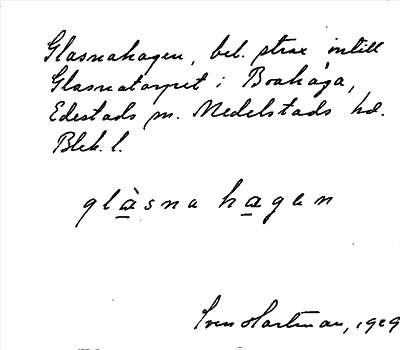 Glasnahagen, bel. strax intill
Glasnatorpet i Boahåga,
Edestads sn. Medelstads hd.
Blek. l.
glàsna hagen
Sven Hartman, 1929